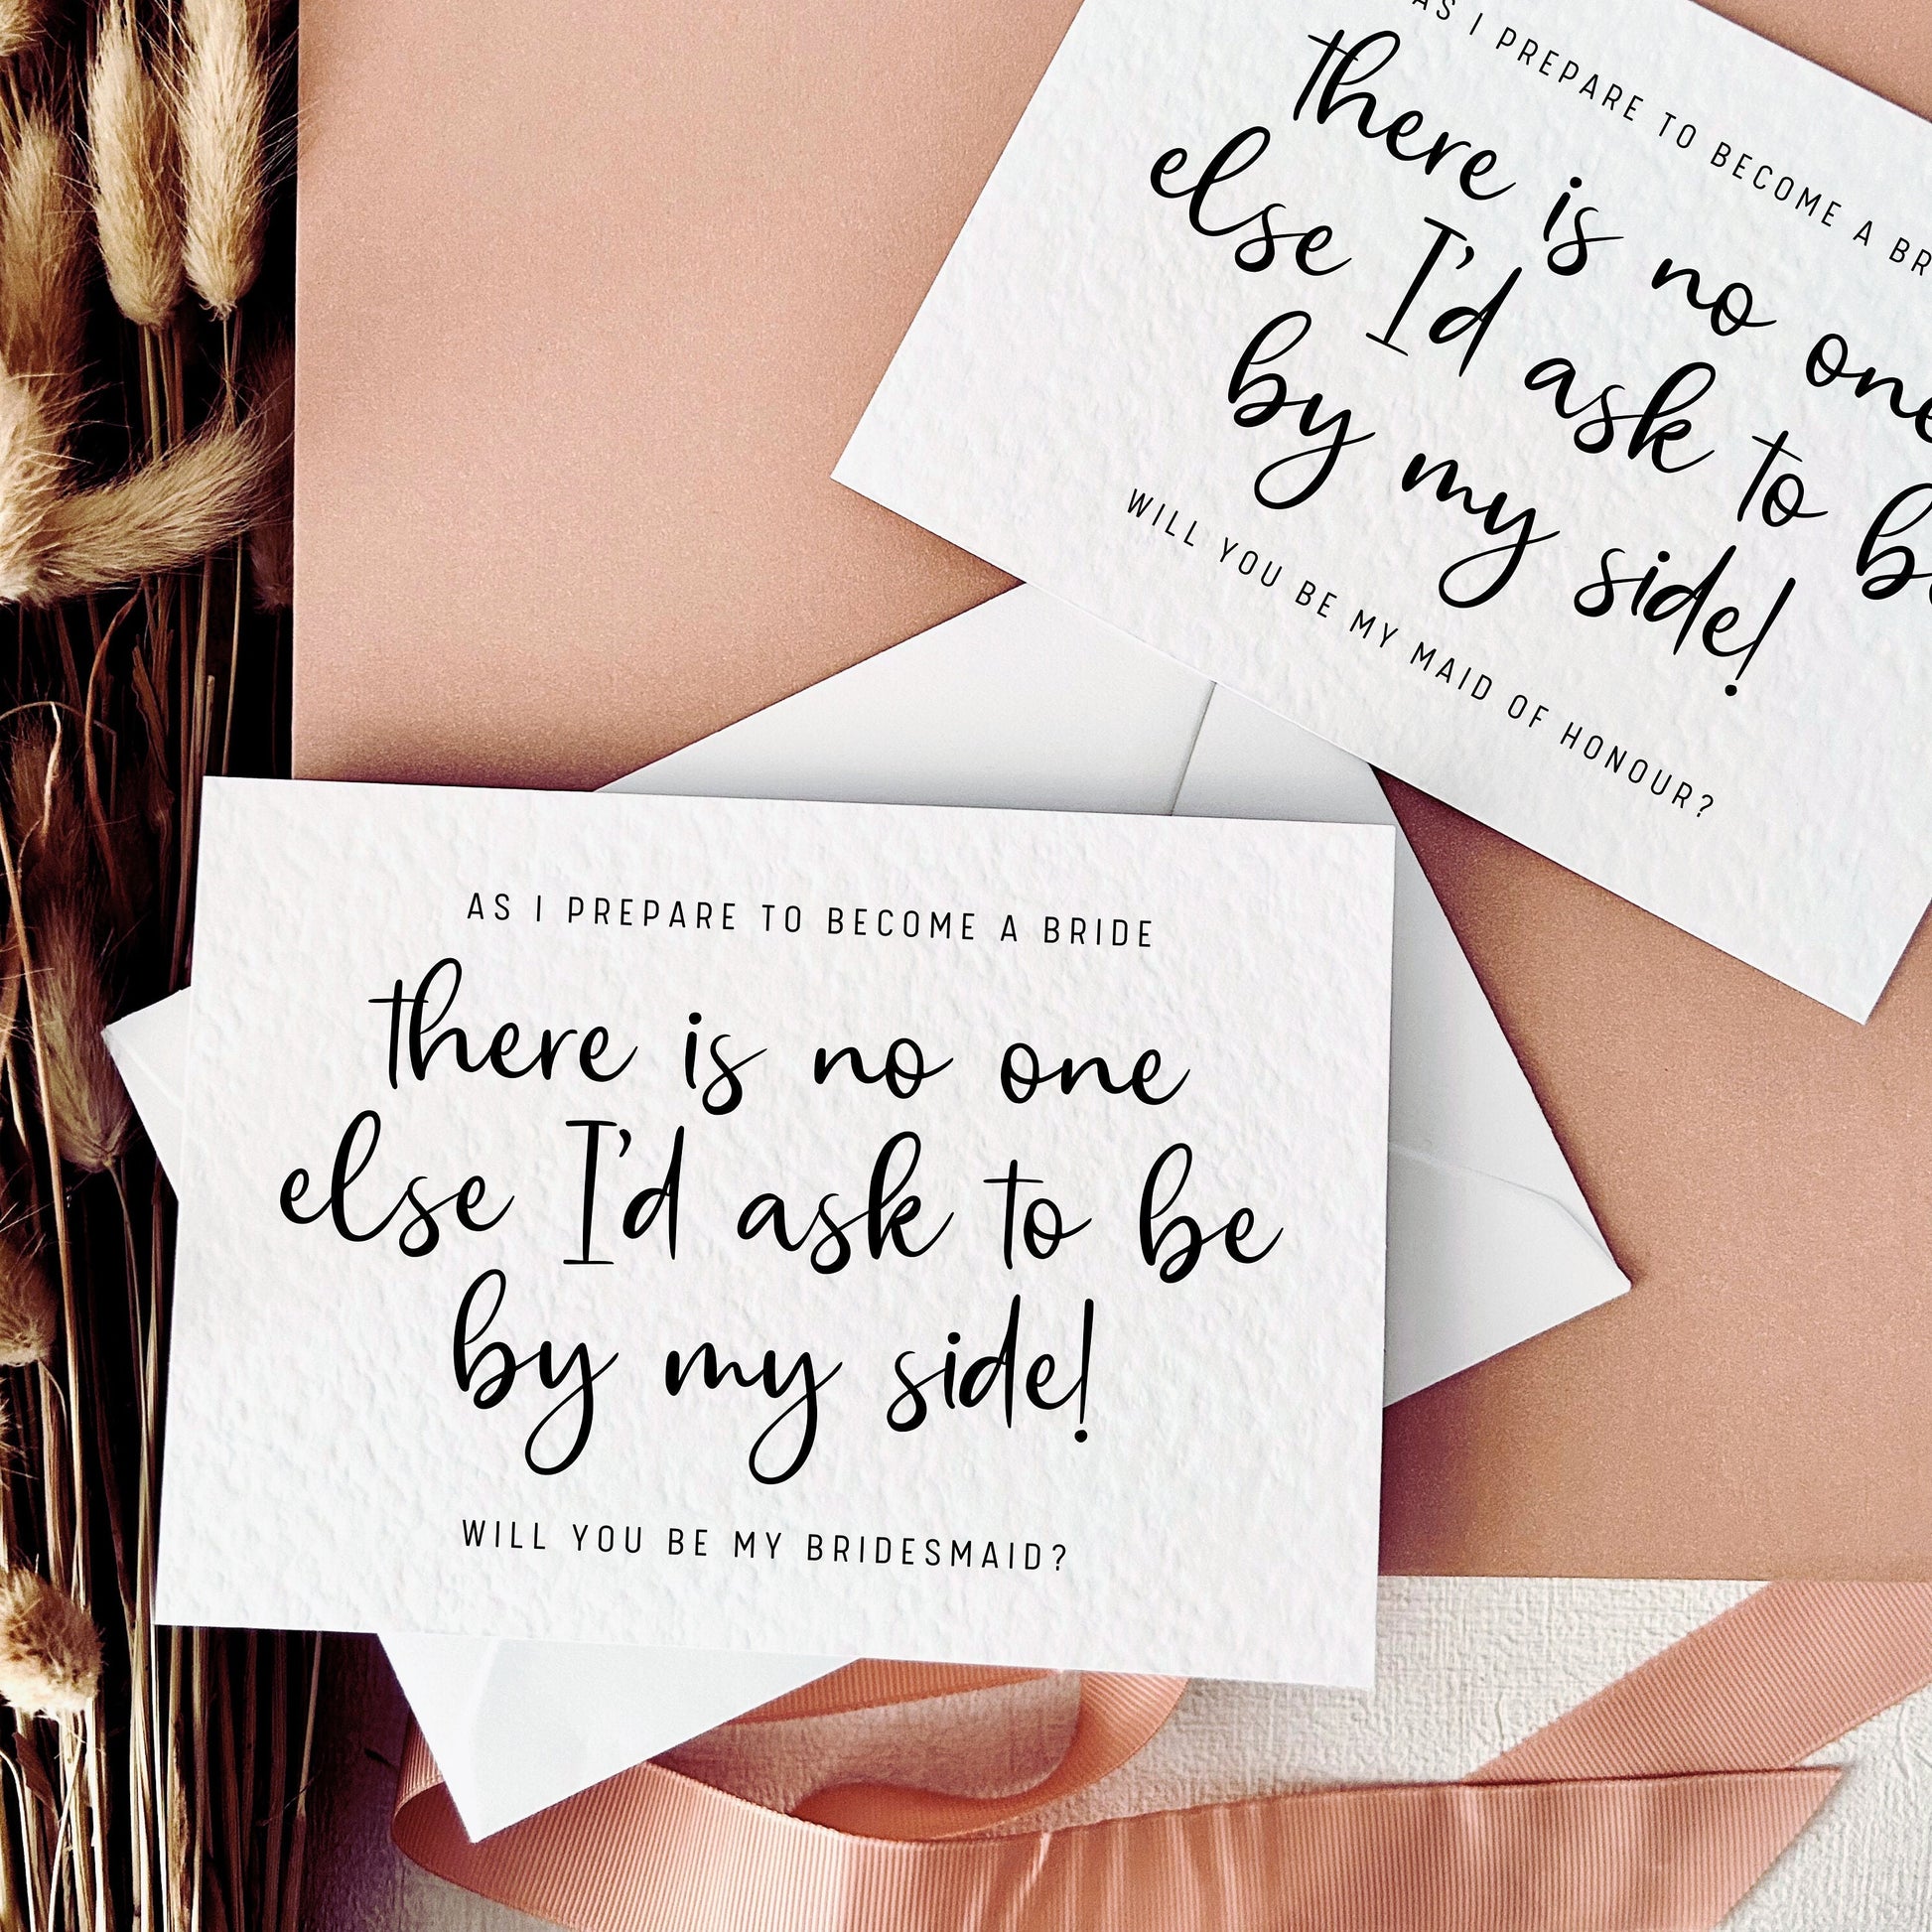 AS I PREPARE TO BECOME A
there is no one
else I'd ask to
by my side!
WILL YOU BE MY MAID OF HONOUR?
AS I PREPARE TO BECOME A BRIDE
there is no one
else I'd ask to be
by my side!
WILL YOU BE MY BRIDESMAID?